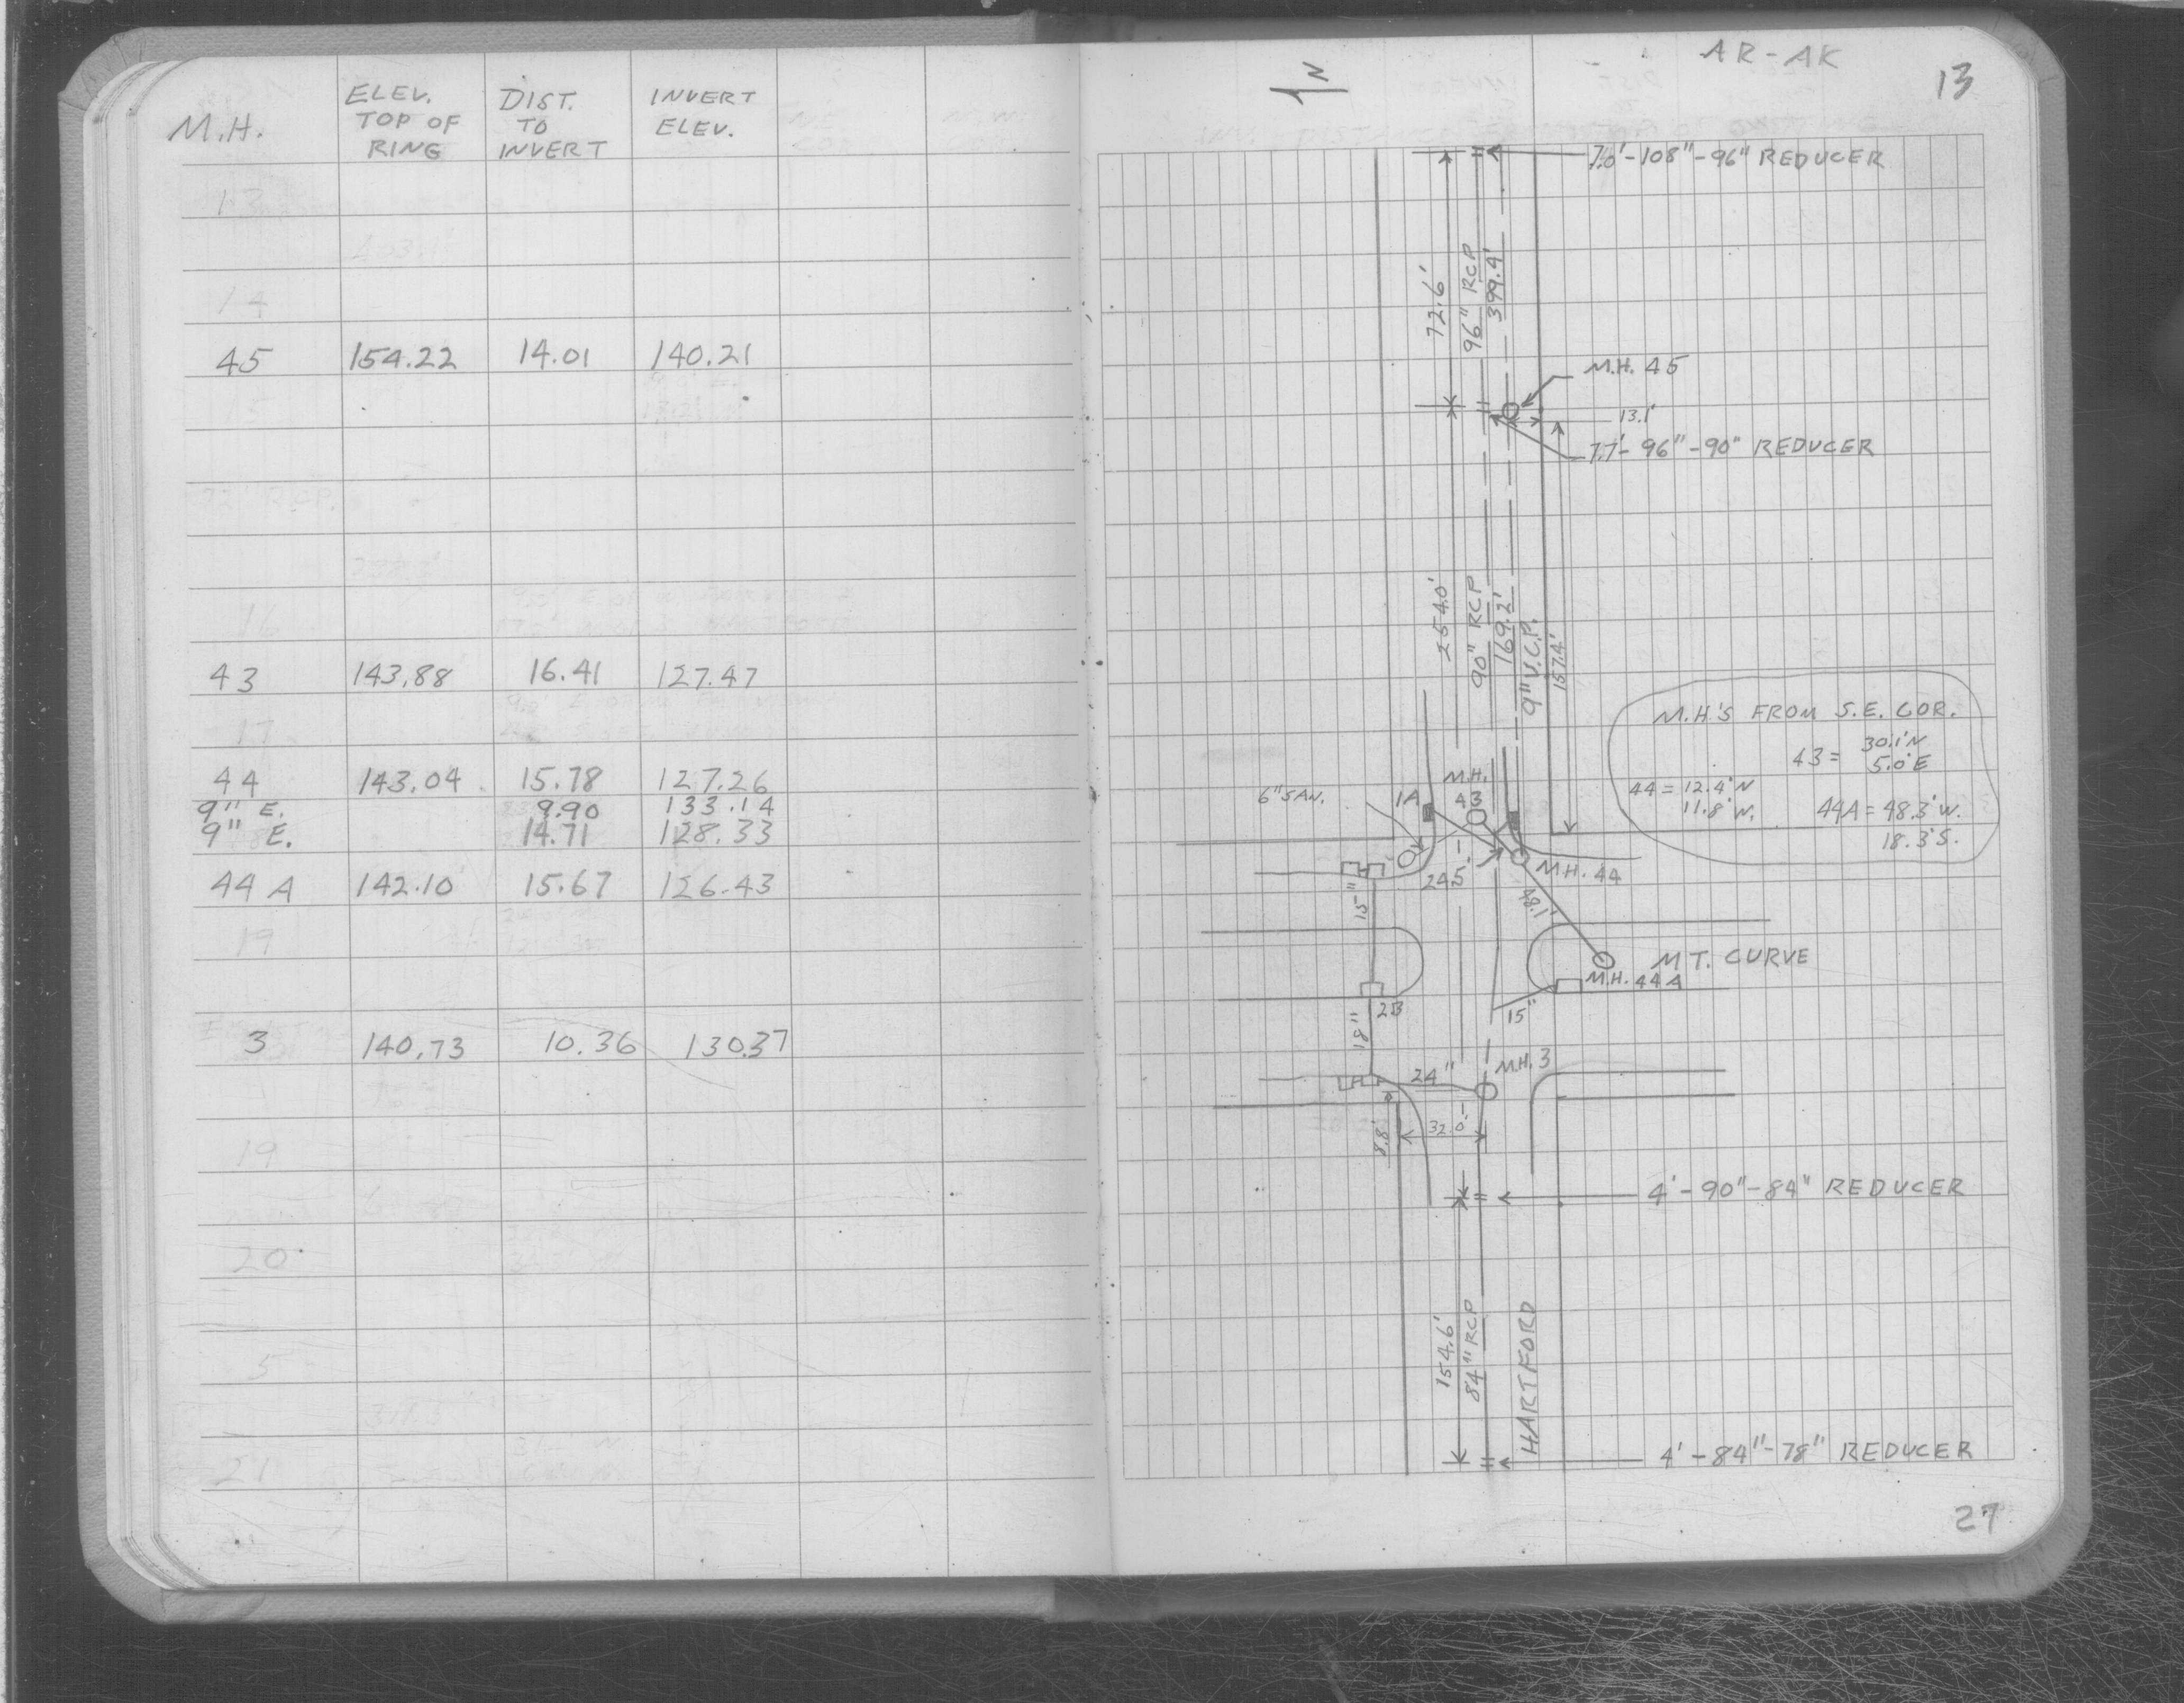 M.H.
ELEV.
TOP OF
RING
DIST.
TO
INVERT
INVERT
ELEV.
45 154.22 14.01 140.21
43 143.88 16.41 127.47
44 143.04 15.78 127.26
9" E. 9.90 133.14
9" E. 14.71 128.33
44 A 142.10 15.67 126.43
3 140.73 10.36 130.37
AR-AK
13
N
7.0'-108"-96" REDUCER
72.6'
96" RCP
399.4'
M.H. 45
13.1'
7.7'-96"-90" REDUCER
254.0'
90" RCP
169.2'
9" V.C.P.
157.4'
M.H'S FROM S.E. COR.
43 = 30.1'N
5.0'E
44 = 12.4'N
11.8'W.
44A = 48.3'W.
18.3'S.
6" SAN.
1A
M.H.
43
24.5
M.H. 44
15"
MT. CURVE
M.H. 44A
2B
15"
18"
M.H. 3
24"
32.0'
8.8'
4'-90"-84" REDUCER
154.6'
84" RCP
HARTFORD
4'-84"-78" REDUCER
27